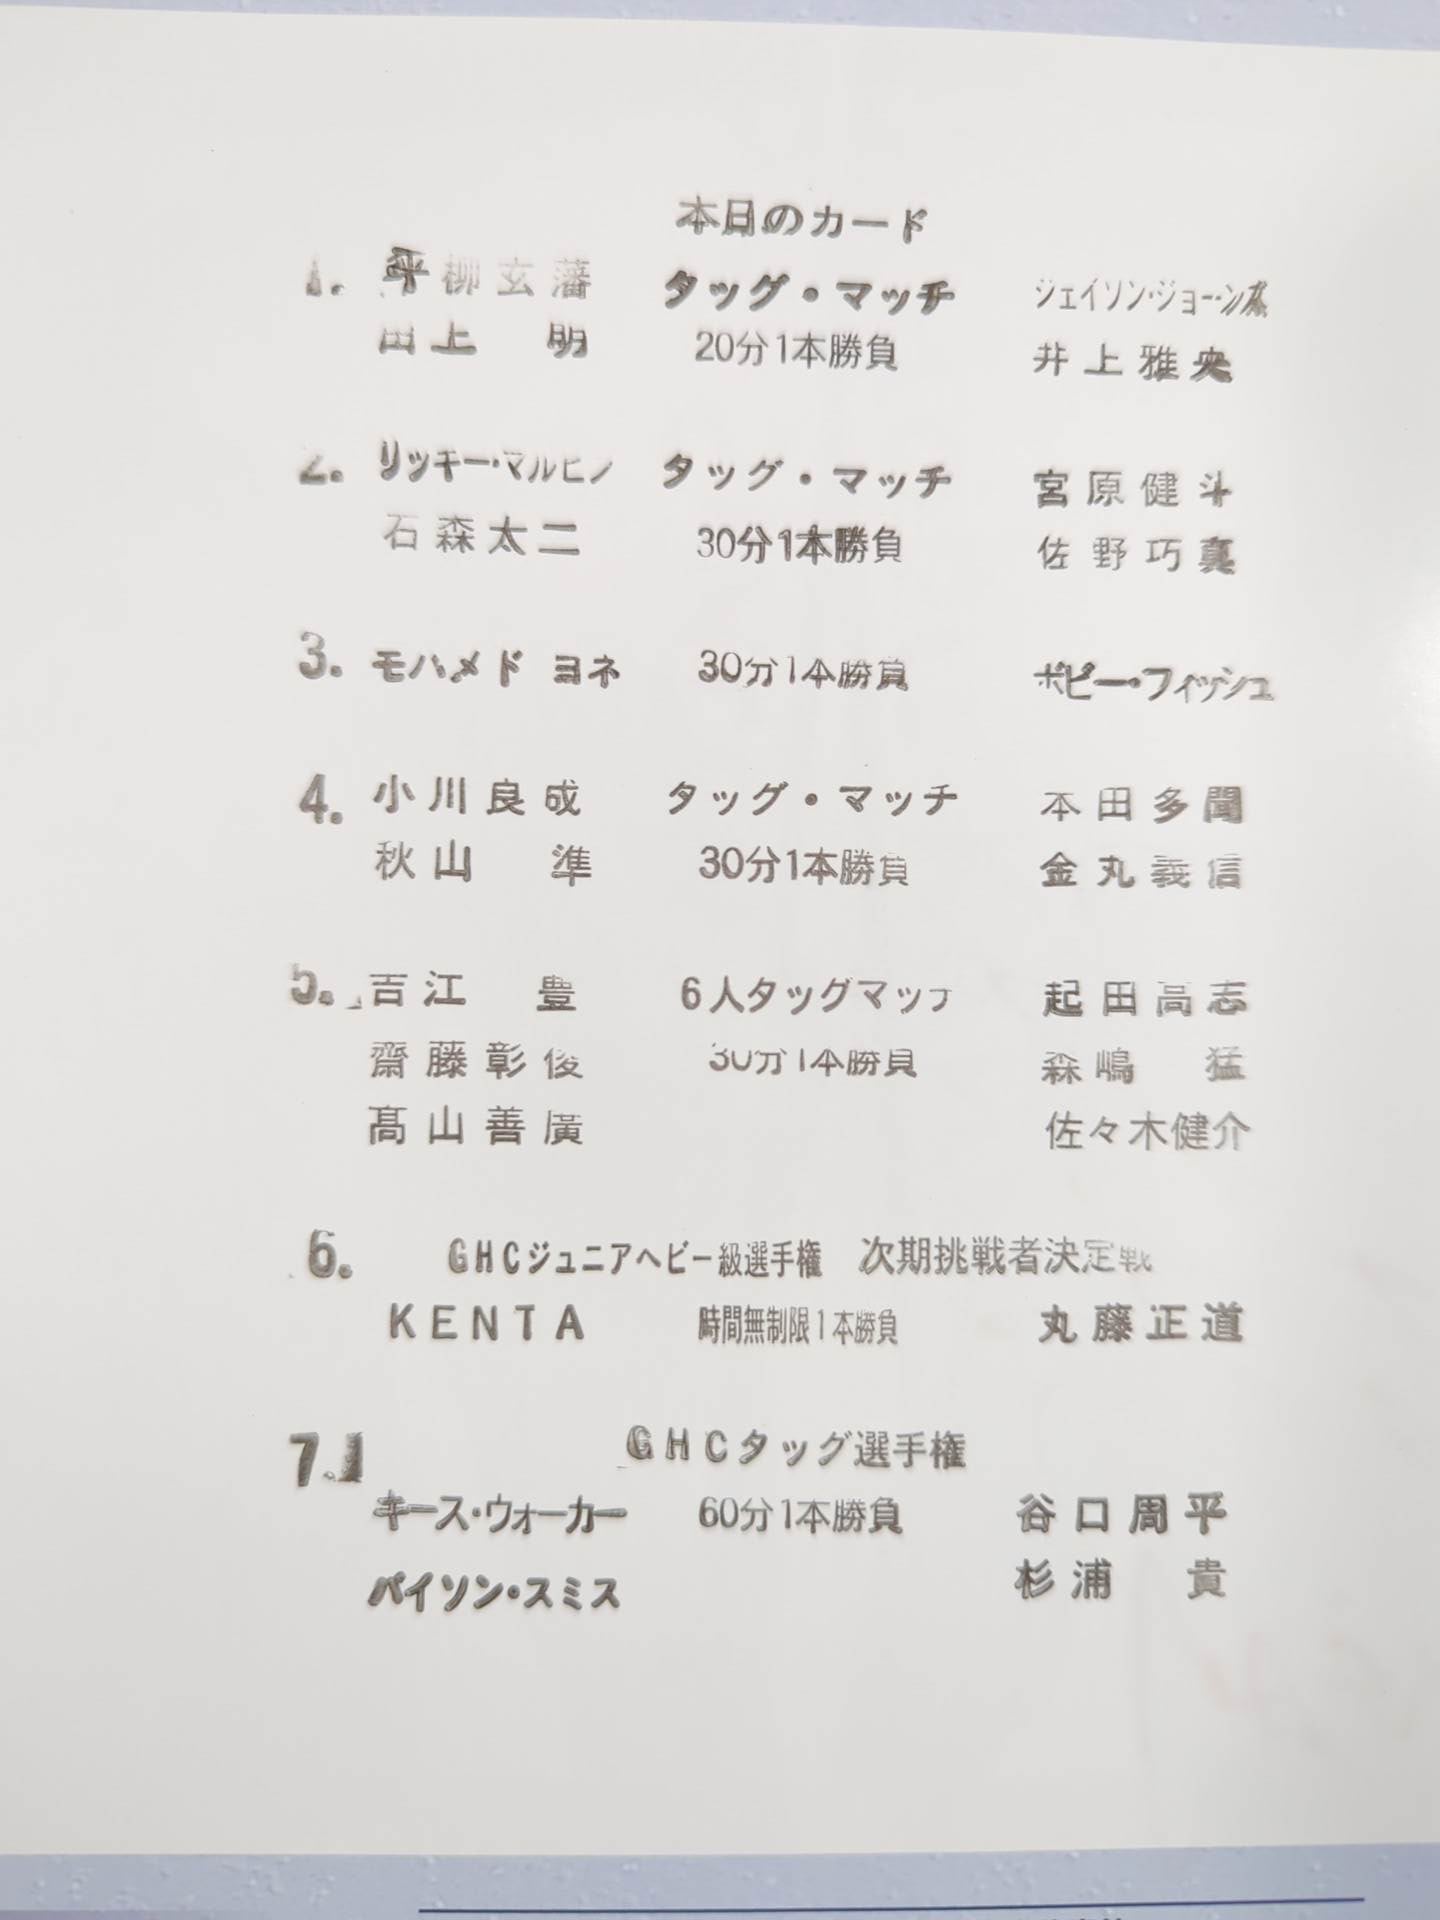 本日のカード
1. 平柳玄藩 タッグ・マッチ ジェイソン・ジョーンズ
田上 明 20分1本勝負 井上雅央
2. リッキー・マルビン タッグ・マッチ 宮原健斗
石森太二 30分1本勝負 佐野巧真
3. モハメド ヨネ 30分1本勝負 ボビー・フィッシュ
4. 小川良成 タッグ・マッチ 本田多聞
秋山 準 30分1本勝負 金丸義信
5. 吉江 豊 6人タッグマッチ 起田高志
齋藤彰俊 30分1本勝負 森嶋 猛
髙山善廣 佐々木健介
6. GHCジュニアヘビー級選手権 次期挑戦者決定戦
KENTA 時間無制限1本勝負 丸藤正道
7. GHCタッグ選手権
キース・ウォーカー 60分1本勝負 谷口周平
バイソン・スミス 杉浦 貴